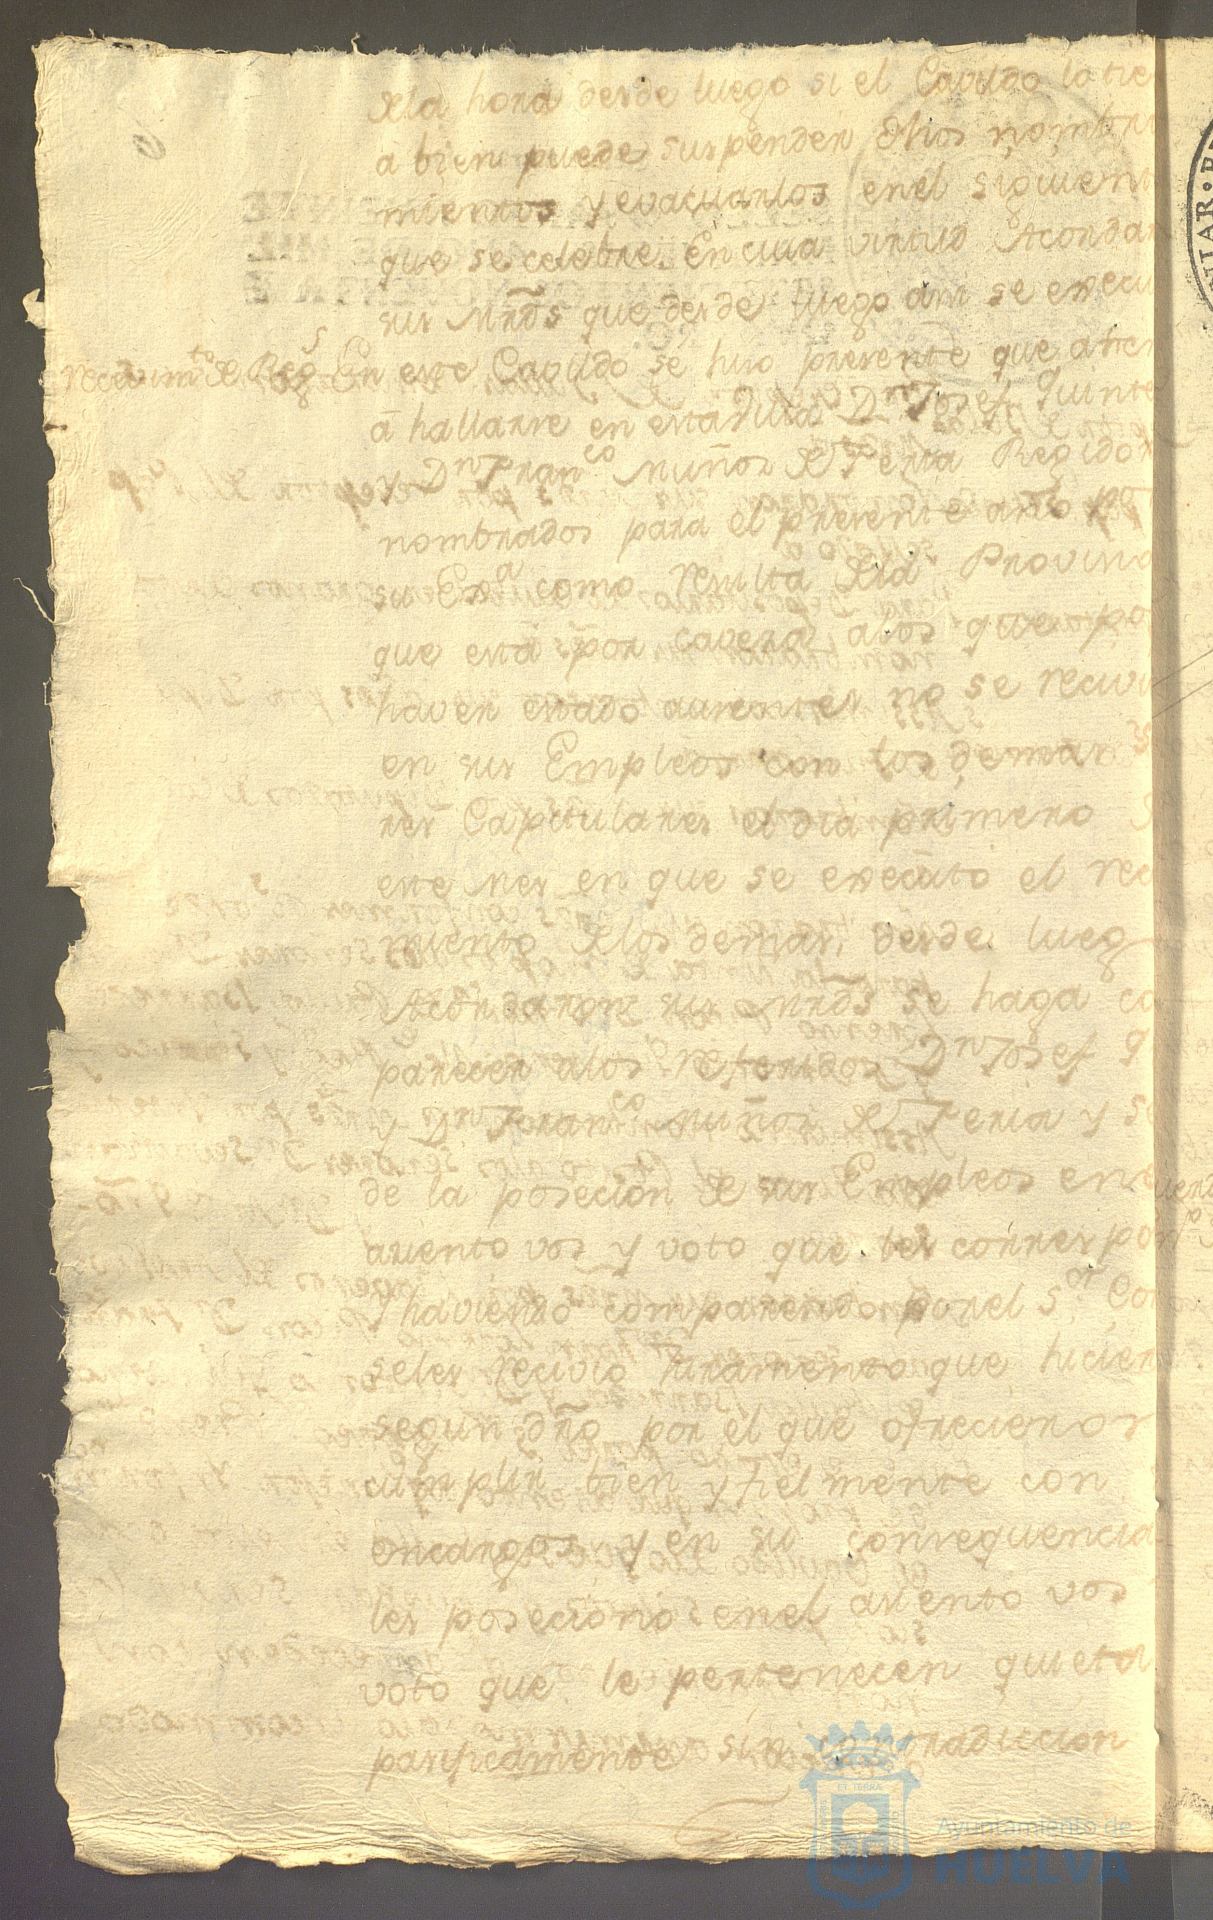 dela hora desde luego si el Cavildo lo tie
a bien puede suspender dhos nombra
mientos y evacuarlos enel siguient
que se celebre. En cuia virtud Acordar
sus mrds que desde luego asi se execu
recevimto de Regs En este Cavildo se hizo presente que aten
â hallarse en esta Villa Dn Josef Quinte
y Dn Franco Muñoz de Feria Regidor
nombrados para el presente año por
su Exa como resulta dela Provid
que está por caveza, alos que po
haver estado ausentes no se reciví
en sus Empleos con los demas s
res Capitulares el dia primero d
este mes en que se executó el rec
miento delos demas, desde lueg
Acordaron sus mrds se haga co
parecer alos referidos Dn Josef q
y Dn Franco Muñoz de Feria y se
de la poseción de sus Empleos en
asiento vos y voto que les correspon
y haviendo comparecido por el Sor Cor
seles recivió juramento que hicier
segun dro por el que ofrecieron
cumplir bien y fielmente con
encargos y en su consequencia
les posecionó enel asiento vos
voto que le pertenecen quieta
pasificamente sin contradiccion
ET TERRÆ
Ayuntamiento de
HUELVA